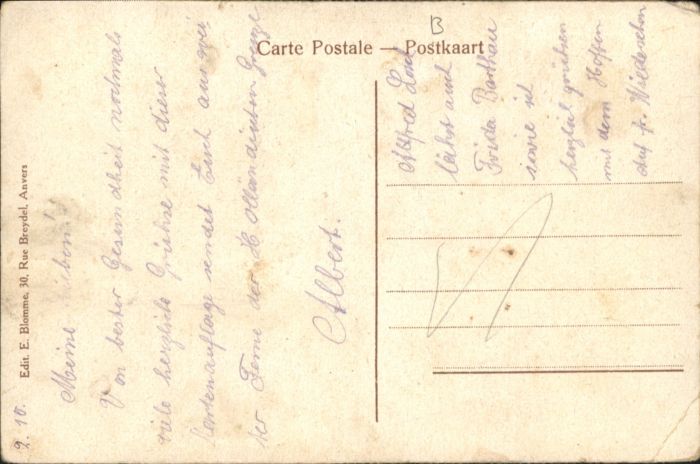 B
Carte Postale — Postkaart
Edit. E. Blomme, 30, Rue Breydel, Anvers
2. 10.
Meine Lieben!
Von bester Gesundheit nochmals
viele herzliche Grüsse mit dieser
sendet Euch aus
der Ferne der Holländischen Grenze
Albert.
Alfred
und
Frida
sowie ist
herzlich grüssen
mit dem Hoffen
auf fr. Wiedersehn